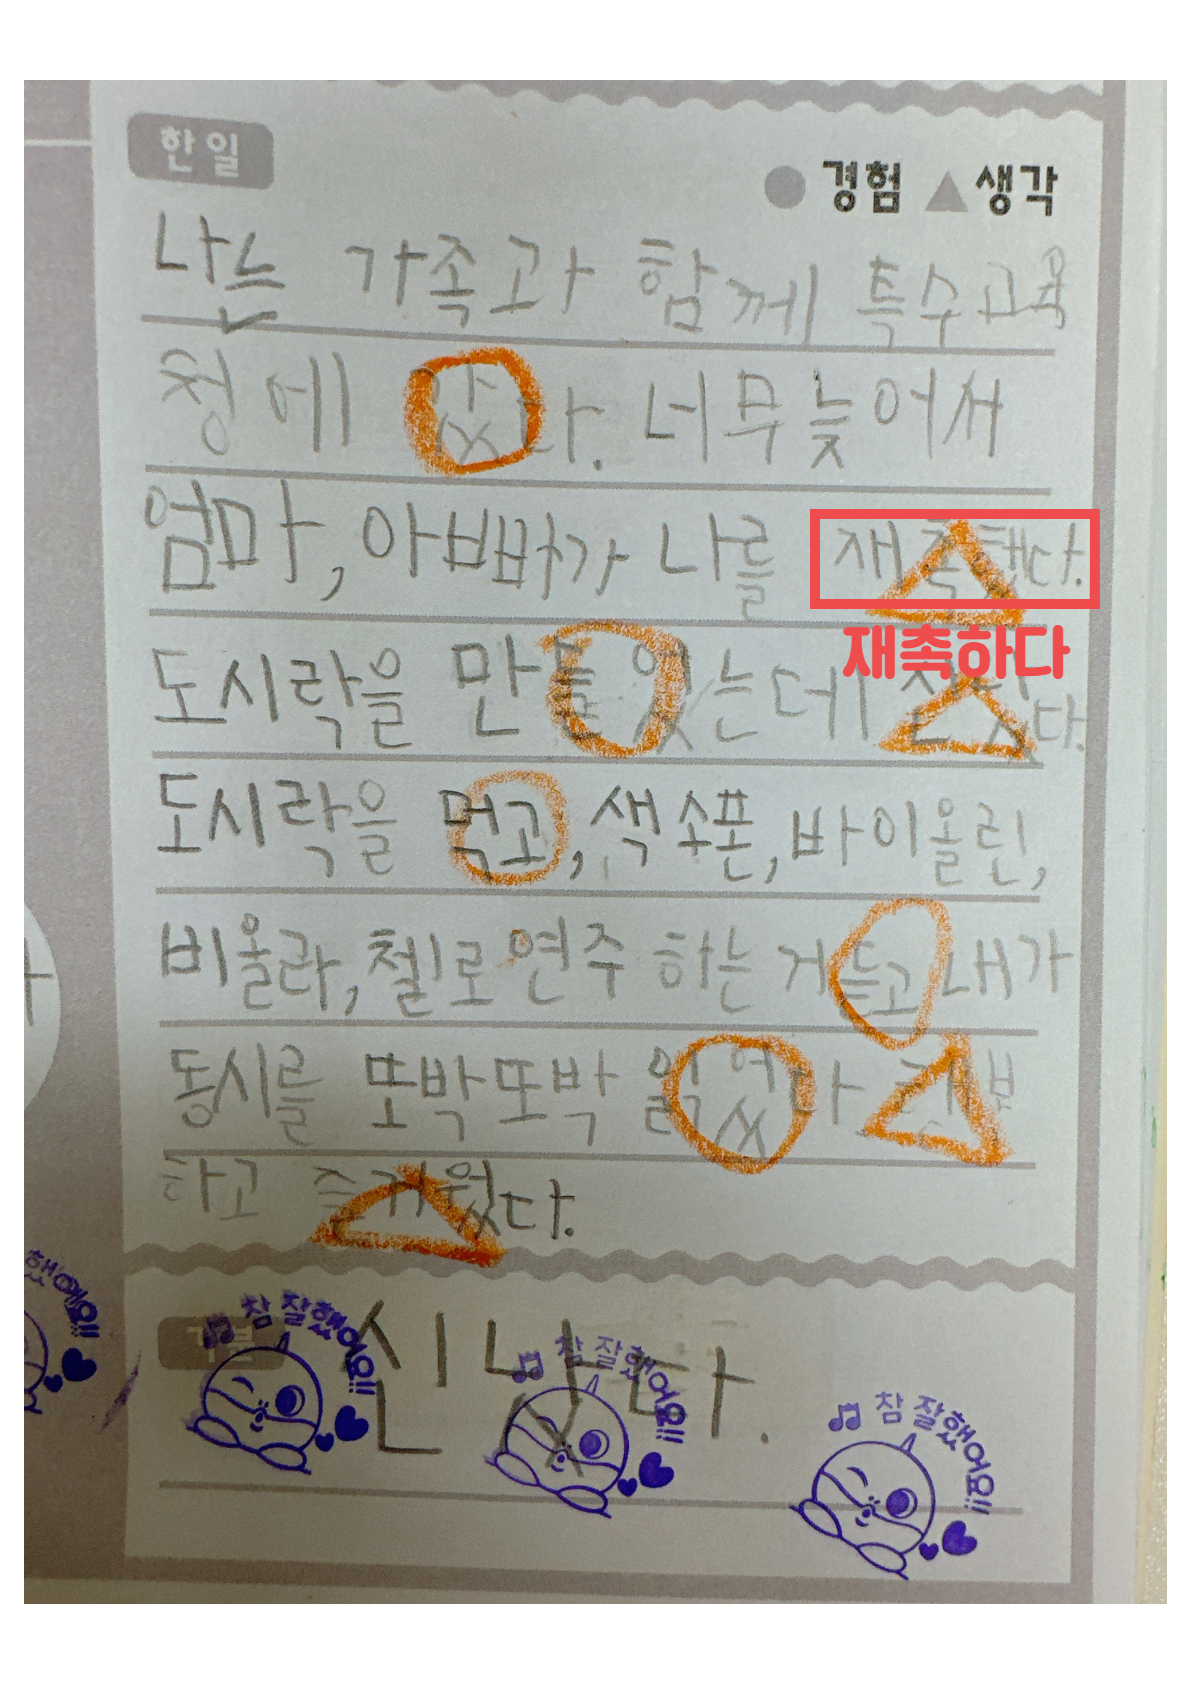 한일
● 경험 ▲ 생각
나는 가족과 함께 특수교육
청에 갔다. 너무 늦어서
엄마, 아빠가 나를 재촉했다.
재촉하다
도시락을 만들 었는데
다.
도시락을 먹고, 색소폰, 바이올린,
비올라, 첼로 연주 하는 거 듣고 내가
동시를 또박또박 읽었다
하고 즐거웠다.
기분
신났다.
참 잘했어요!!
참 잘했어요!!
참 잘했어요!!
했어요!!